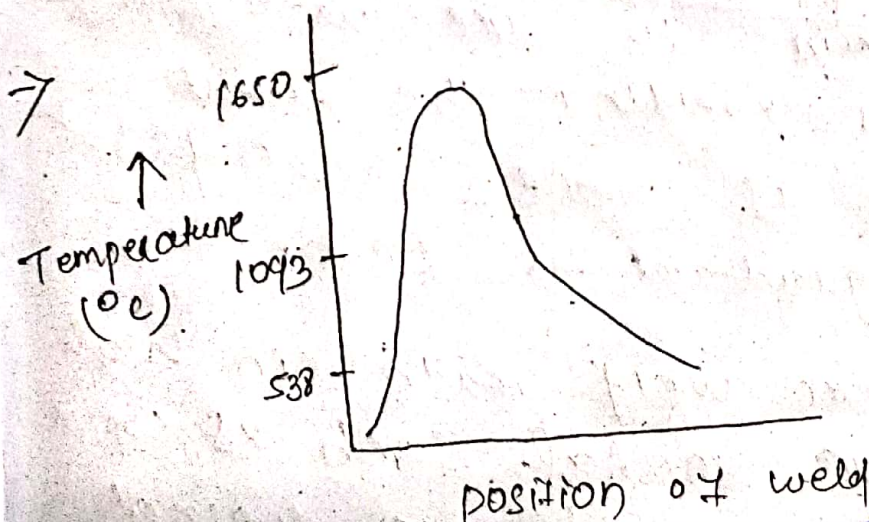 1650
Temperature
(°C)
1093
538
position of weld